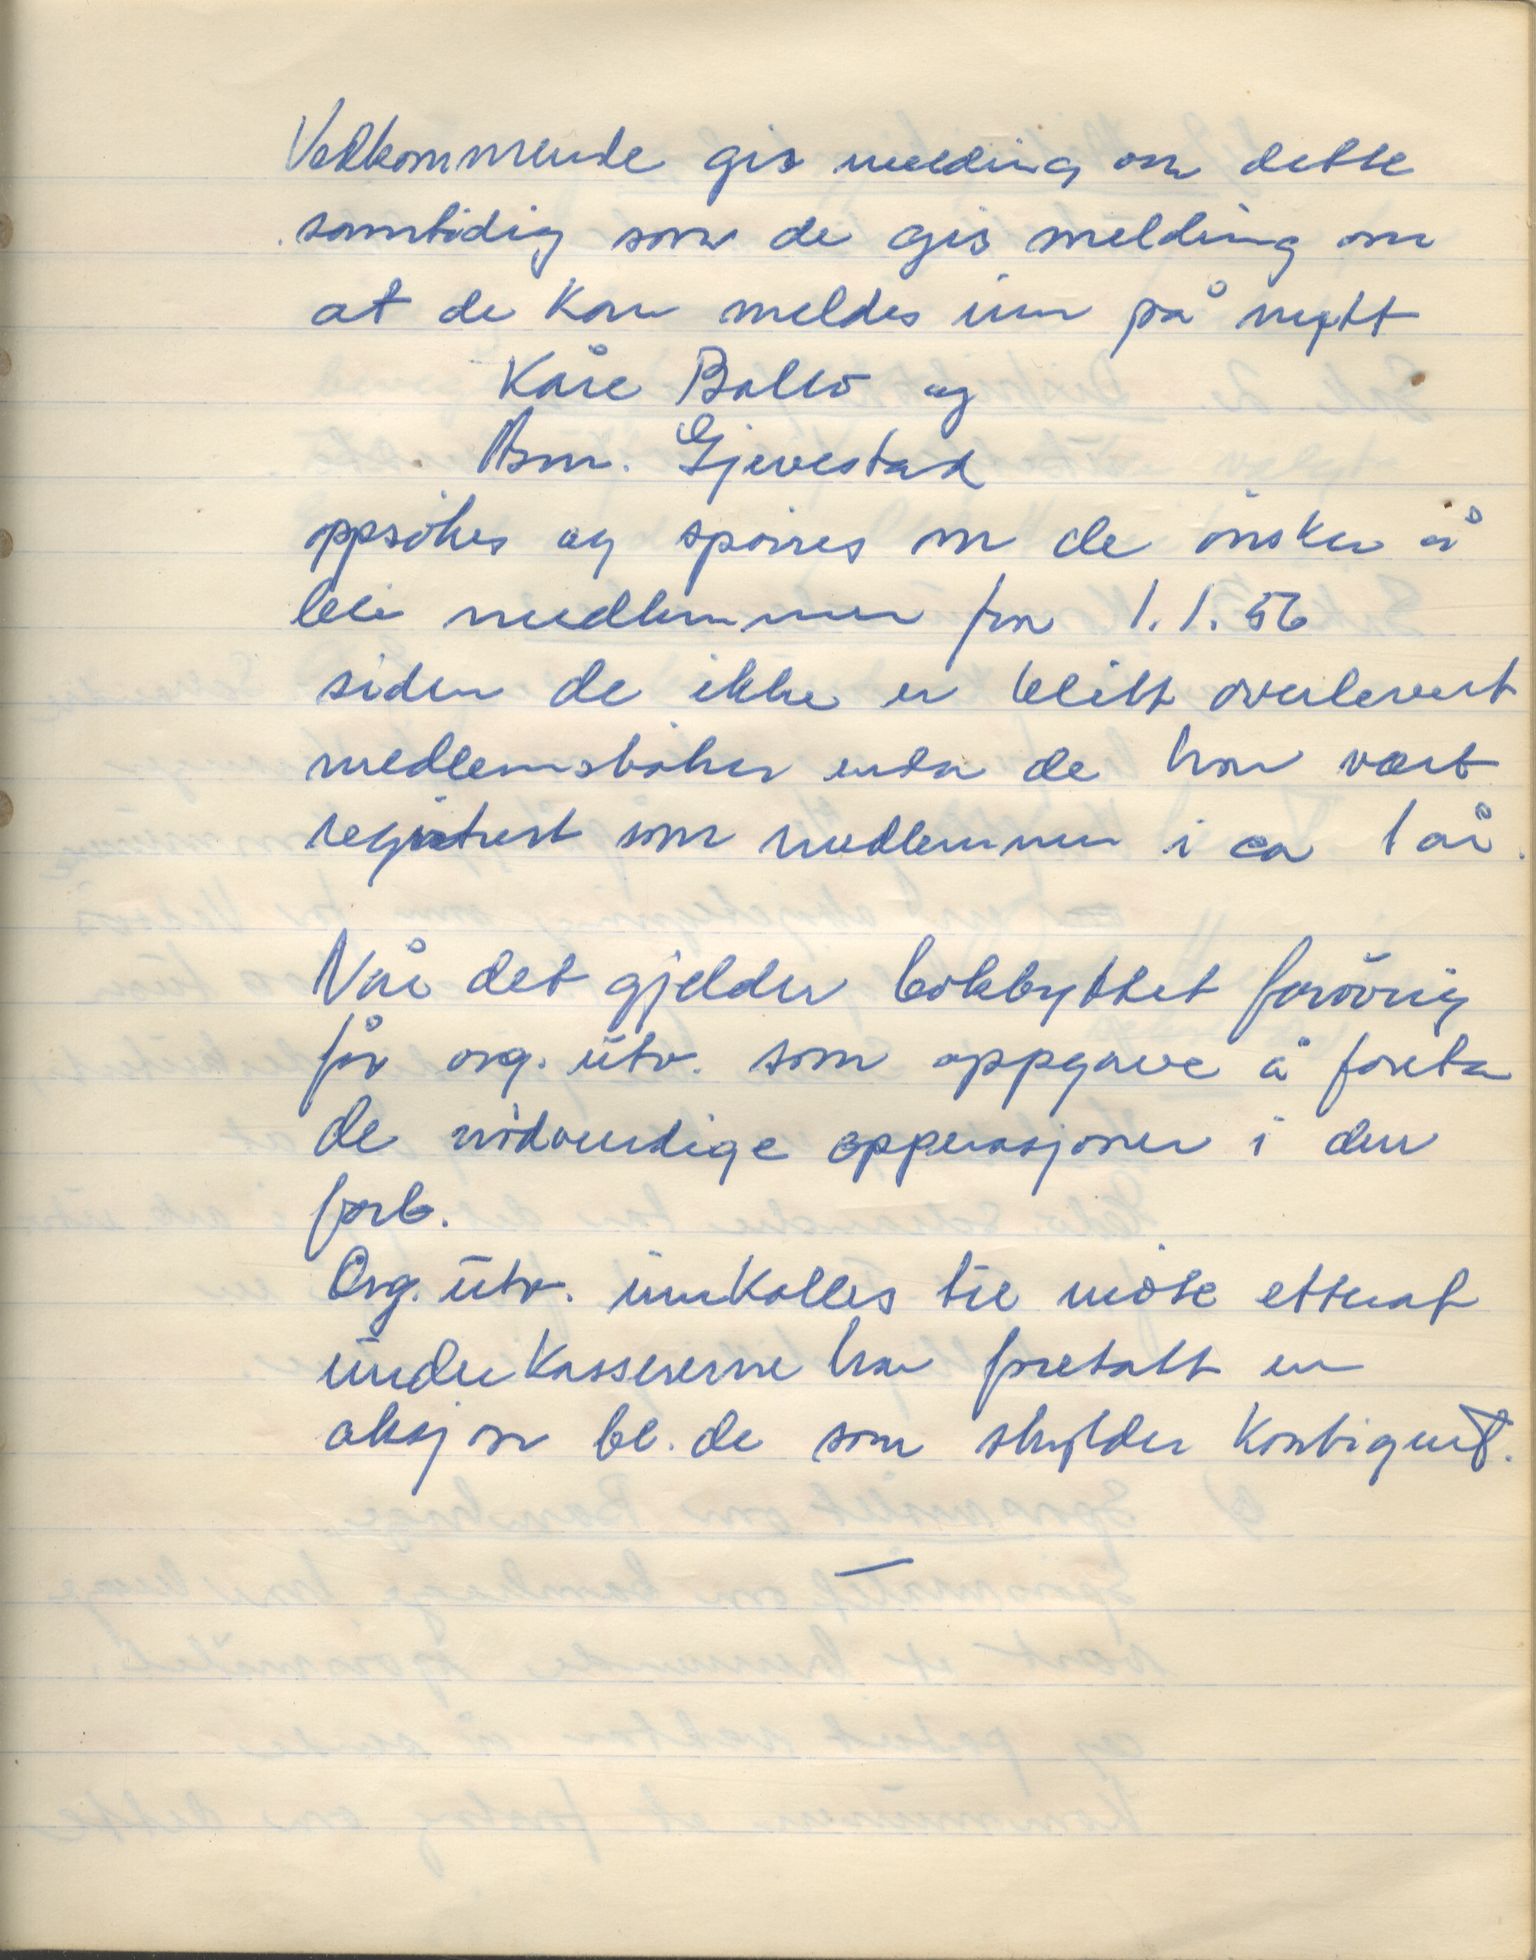 Vedkommende gis melding om dette
samtidig som de gis melding om
at de kan meldes inn på nytt
Kåre Ballo og
Asm. Gjevestad
oppsökes og spörres om de önsker å
bli medlemmer fra 1.1.56
siden de ikke er blitt overlevert
medlemsböker enda de har vært
registrert som medlemmer i ca 1 år.
Når det gjelder bokbyttet forövrig
får org. utv. som oppgave å foreta
de nödvendige opperasjoner i den
forb.
Org. utv. innkalles til möte etterat
underkassererne har foretatt en
aksjon bl. de som skylder kontigent.